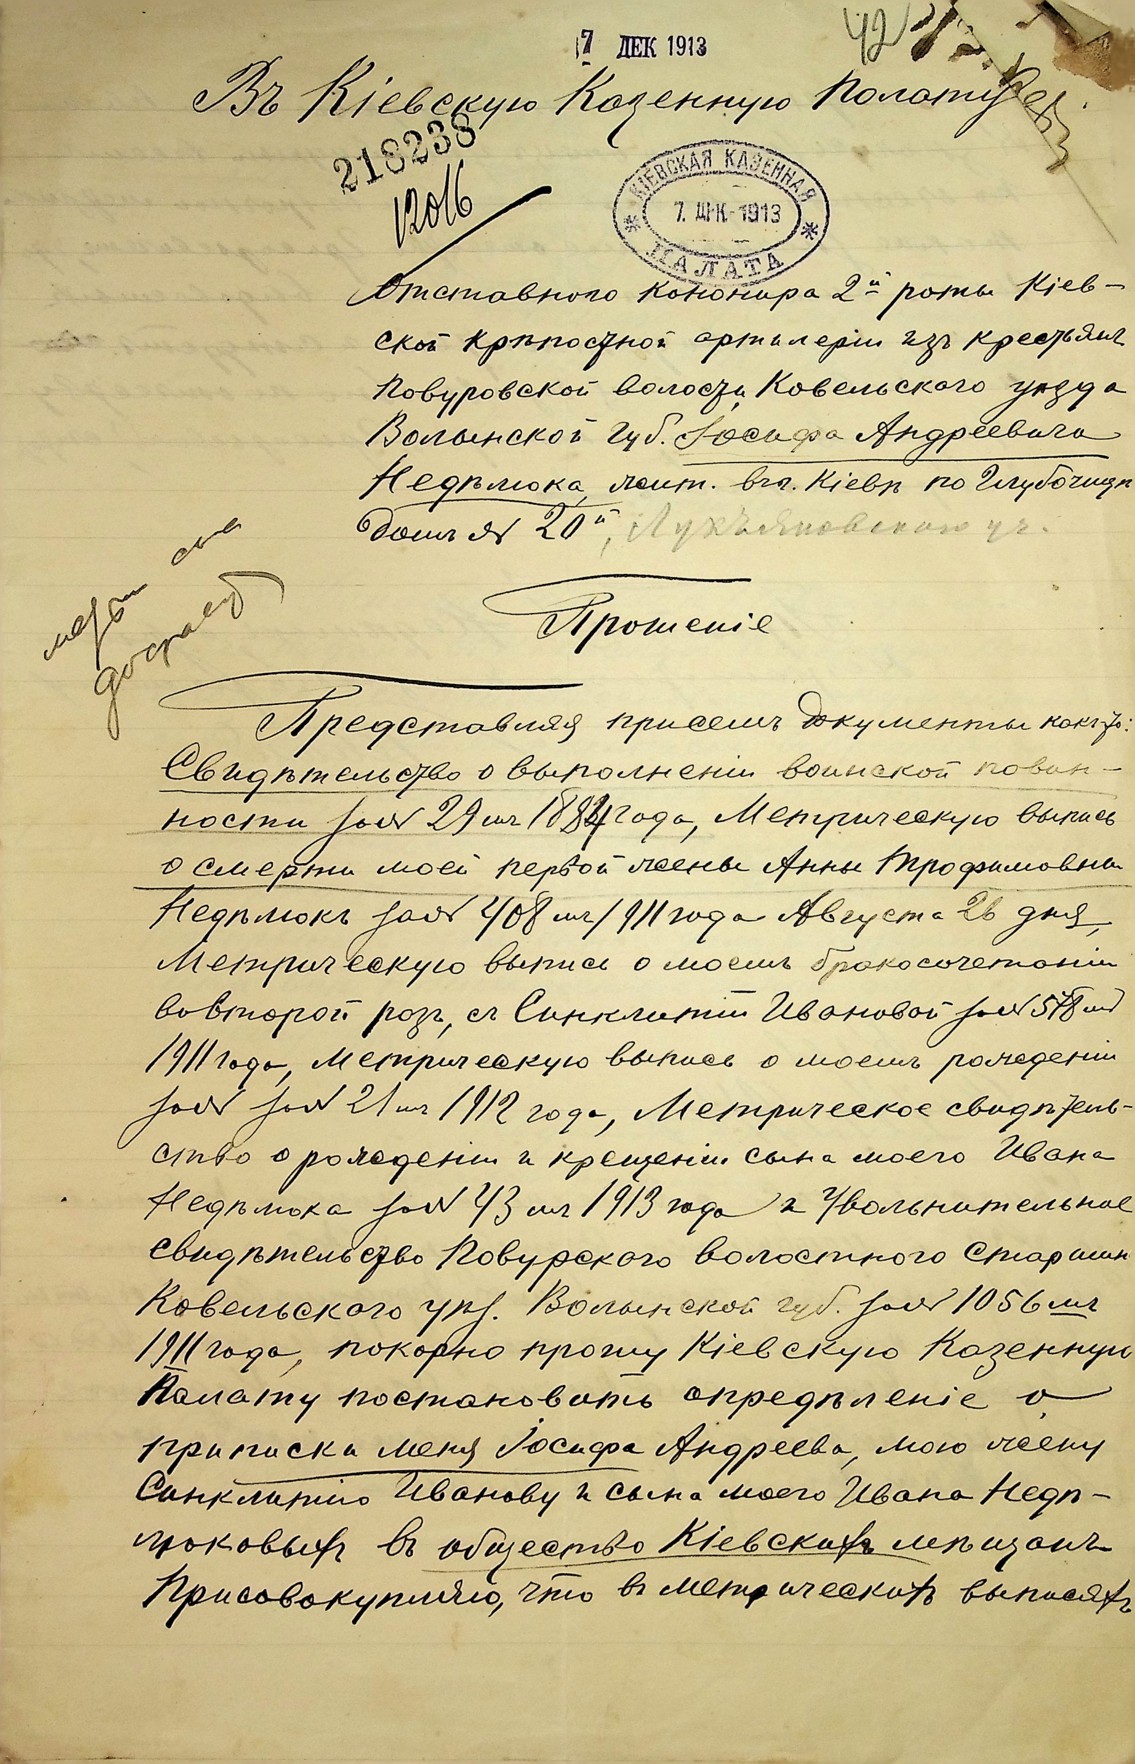 7 ДЕК 1913
Въ Кіевскую Казенную Палату
218238
12016
КІЕВСКАЯ КАЗЕННАЯ
7. ДЕК. 1913
ПАЛАТА
Отставного канонира 2й роты Кіев-
ской крѣпостной артилеріи изъ крестьянъ
Повуровской волости, Ковельского уѣзда
Волынской губ. Іосифа Андреевича
Недѣлюка, жит. въ г. Кіевѣ по Глубочицѣ
домъ № 20й, Лукьяновского уч.
Прошеніе
Представляя присемъ документы какъ то:
Свидѣтельство о выполненіи воинской повин-
ности за № 29мъ 1884 года, Метрическую выпись
о смерти моей первой жены Анны Трофимовны
Недѣлюкъ за № 408мъ 1911 года Августа 26 дня,
Метрическую выпись о моемъ бракосочетаніи
во второй разъ, съ Синклитіи Ивановой за № 578мъ
1911 года, Метрическую выпись о моемъ рожденіи
за № за № 21мъ 1912 года, Метрическое свидѣтель-
ство о рожденіи и крещеніи сына моего Ивана
Недѣлюка за № 43мъ 1913 года и Увольнительное
свидѣтельство Повурского волостного Старшин
Ковельского уѣз. Волынской губ. за № 1056мъ
1911 года, покорно прошу Кіевскую Казенную
Палату постановить опредѣленіе о
приписки меня Іосифа Андреева, мою жену
Синклитію Иванову и сына моего Ивана Недѣ-
люковыхъ въ общество Кіевскихъ мѣщанъ
Присовокупляю, что въ метрическихъ выписяхъ